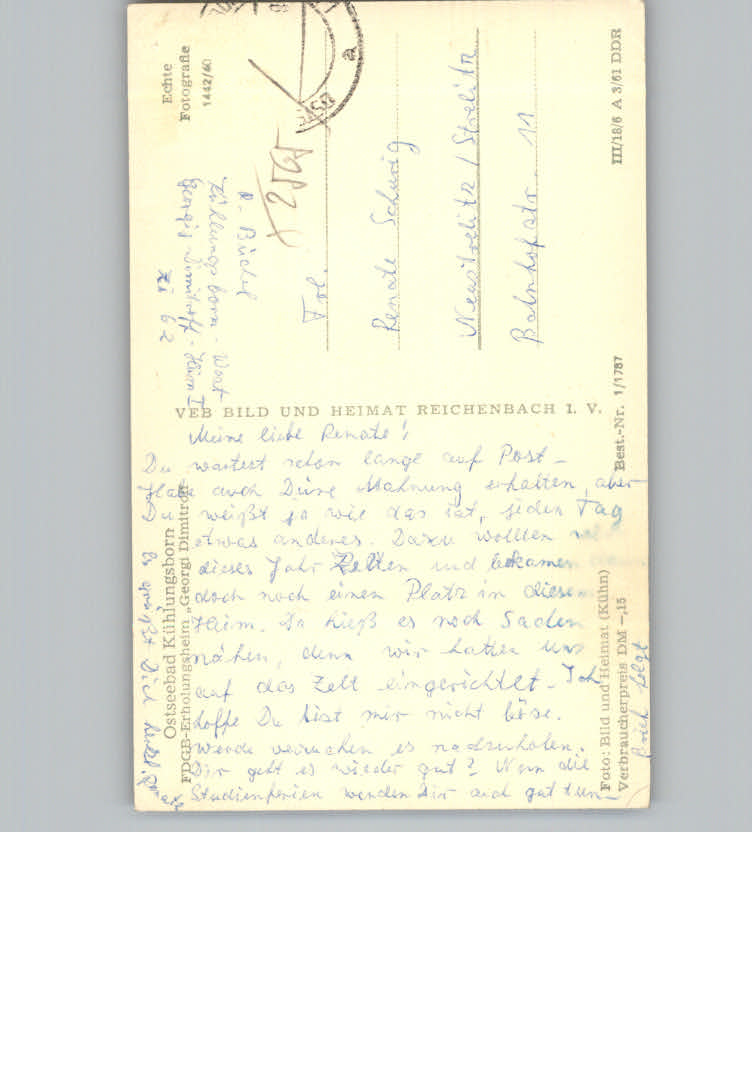 Meine liebe Renate!
Du wartest schon lange auf Post –
Habe auch Deine Mahnung erhalten, aber
Du weißt ja wie das ist, jeden Tag
etwas anderes. Dazu wollten
dieses Jahr Zelten und bekamen
doch noch einen Platz in diesem
Heim. Da hieß es noch Sachen
nähen, denn wir hatten uns
auf das Zelt eingerichtet. Ich
hoffe Du bist mir nicht böse.
werde versuchen es nachzuholen.
Dir geht es wieder gut? Nun die
Studienferien werden Dir auch gut tun –
Brief folgt
Es grüßt Dich
Ostseebad Kühlungsborn
FDGB-Erholungsheim „Georgi Dimitroff“
Foto: Bild und Heimat (Kühn)
Verbraucherpreis DM –,15
VEB BILD UND HEIMAT REICHENBACH I. V.
Best.-Nr. 1/1787
III/18/6 A 3/61 DDR
Echte
Fotografie
1442/60
Kühlungsborn - West
Georgi Dimitroff - Heim I
Zi 62
Frl.
Renate Schurig
Neustrelitz / Strelitz
Bahnhofstr. 11